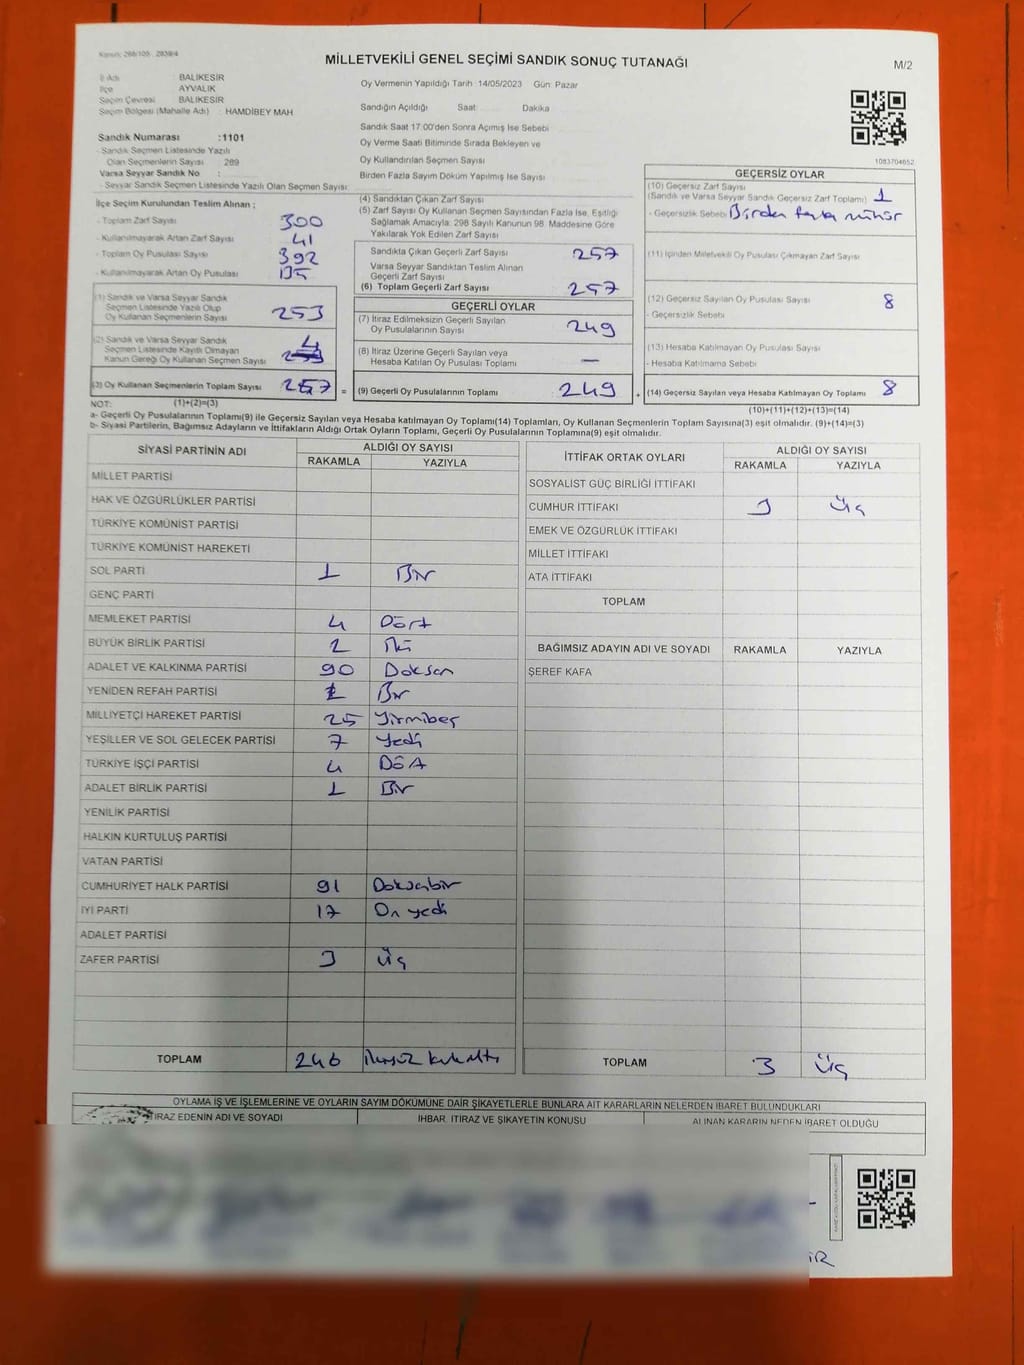 MİLLETVEKİLİ GENEL SEÇİMİ SANDIK SONUÇ TUTANAĞI
M/2
İl Adı : BALIKESİR
İlçe : AYVALIK
Seçim Çevresi : BALIKESİR
Seçim Bölgesi (Mahalle Adı) : HAMDİBEY MAH
Sandık Numarası :1101
- Sandık Seçmen Listesinde Yazılı
Olan Seçmenlerin Sayısı : 289
Varsa Seyyar Sandık No :
- Seyyar Sandık Seçmen Listesinde Yazılı Olan Seçmen Sayısı:
Oy Vermenin Yapıldığı Tarih 14/05/2023 Gün: Pazar
Sandığın Açıldığı Saat Dakika
Sandık Saat 17:00'den Sonra Açılmış İse Sebebi
Oy Verme Saati Bitiminde Sırada Bekleyen ve
Oy Kullandırılan Seçmen Sayısı
Birden Fazla Sayım Döküm Yapılmış İse Sayısı
1083704652
İlçe Seçim Kurulundan Teslim Alınan ;
- Toplam Zarf Sayısı 300
- Kullanılmayarak Artan Zarf Sayısı 41
- Toplam Oy Pusulası Sayısı 392
- Kullanılmayarak Artan Oy Pusulası
(1) Sandık ve Varsa Seyyar Sandık
Seçmen Listesinde Yazılı Olup
Oy Kullanan Seçmenlerin Sayısı 253
(2) Sandık ve Varsa Seyyar Sandık
Seçmen Listesinde Kayıtlı Olmayan
Kanun Gereği Oy Kullanan Seçmen Sayısı 4
(3) Oy Kullanan Seçmenlerin Toplam Sayısı 257 =
(1)+(2)=(3)
(4) Sandıktan Çıkan Zarf Sayısı
(5) Zarf Sayısı Oy Kullanan Seçmen Sayısından Fazla İse, Eşitliği
Sağlamak Amacıyla; 298 Sayılı Kanunun 98. Maddesine Göre
Yakılarak Yok Edilen Zarf Sayısı
Sandıkta Çıkan Geçerli Zarf Sayısı 257
Varsa Seyyar Sandıktan Teslim Alınan
Geçerli Zarf Sayısı
(6) Toplam Geçerli Zarf Sayısı 257
GEÇERLİ OYLAR
(7) İtiraz Edilmeksizin Geçerli Sayılan
Oy Pusulalarının Sayısı 249
(8) İtiraz Üzerine Geçerli Sayılan veya
Hesaba Katılan Oy Pusulası Toplamı —
(9) Geçerli Oy Pusulalarının Toplamı 249 +
GEÇERSİZ OYLAR
(10) Geçersiz Zarf Sayısı
(Sandık ve Varsa Seyyar Sandık Geçersiz Zarf Toplamı) 1
- Geçersizlik Sebebi Birden fazla mühür
(11) İçinden Milletvekili Oy Pusulası Çıkmayan Zarf Sayısı
(12) Geçersiz Sayılan Oy Pusulası Sayısı 8
- Geçersizlik Sebebi
(13) Hesaba Katılmayan Oy Pusulası Sayısı
- Hesaba Katılmama Sebebi
(14) Geçersiz Sayılan veya Hesaba Katılmayan Oy Toplamı 8
(10)+(11)+(12)+(13)=(14)
NOT:
a- Geçerli Oy Pusulalarının Toplamı(9) ile Geçersiz Sayılan veya Hesaba katılmayan Oy Toplamı(14) Toplamları, Oy Kullanan Seçmenlerin Toplam Sayısına(3) eşit olmalıdır. (9)+(14)=(3)
b- Siyasi Partilerin, Bağımsız Adayların ve İttifakların Aldığı Ortak Oyların Toplamı, Geçerli Oy Pusulalarının Toplamına(9) eşit olmalıdır.
SİYASİ PARTİNİN ADI ALDIĞI OY SAYISI
RAKAMLA YAZIYLA
MİLLET PARTİSİ
HAK VE ÖZGÜRLÜKLER PARTİSİ
TÜRKİYE KOMÜNİST PARTİSİ
TÜRKİYE KOMÜNİST HAREKETİ
SOL PARTİ 1 Bir
GENÇ PARTİ
MEMLEKET PARTİSİ 4 Dört
BÜYÜK BİRLİK PARTİSİ 2 İki
ADALET VE KALKINMA PARTİSİ 90 Doksan
YENİDEN REFAH PARTİSİ 1 Bir
MİLLİYETÇİ HAREKET PARTİSİ 25 Yirmibeş
YEŞİLLER VE SOL GELECEK PARTİSİ 7 Yedi
TÜRKİYE İŞÇİ PARTİSİ 4 Dört
ADALET BİRLİK PARTİSİ 1 Bir
YENİLİK PARTİSİ
HALKIN KURTULUŞ PARTİSİ
VATAN PARTİSİ
CUMHURİYET HALK PARTİSİ 91 Doksanbir
İYİ PARTİ 17 On yedi
ADALET PARTİSİ
ZAFER PARTİSİ 3 Üç
TOPLAM 246 ikiyüz kırkaltı
İTTİFAK ORTAK OYLARI ALDIĞI OY SAYISI
RAKAMLA YAZIYLA
SOSYALİST GÜÇ BİRLİĞİ İTTİFAKI
CUMHUR İTTİFAKI 3 Üç
EMEK VE ÖZGÜRLÜK İTTİFAKI
MİLLET İTTİFAKI
ATA İTTİFAKI
TOPLAM
BAĞIMSIZ ADAYIN ADI VE SOYADI RAKAMLA YAZIYLA
ŞEREF KAFA
TOPLAM 3 Üç
OYLAMA İŞ VE İŞLEMLERİNE VE OYLARIN SAYIM DÖKÜMÜNE DAİR ŞİKAYETLERLE BUNLARA AİT KARARLARIN NELERDEN İBARET BULUNDUKLARI
İRAZ EDENİN ADI VE SOYADI
İHBAR, İTİRAZ VE ŞİKAYETİN KONUSU
ALINAN KARARIN NEDEN İBARET OLDUĞU